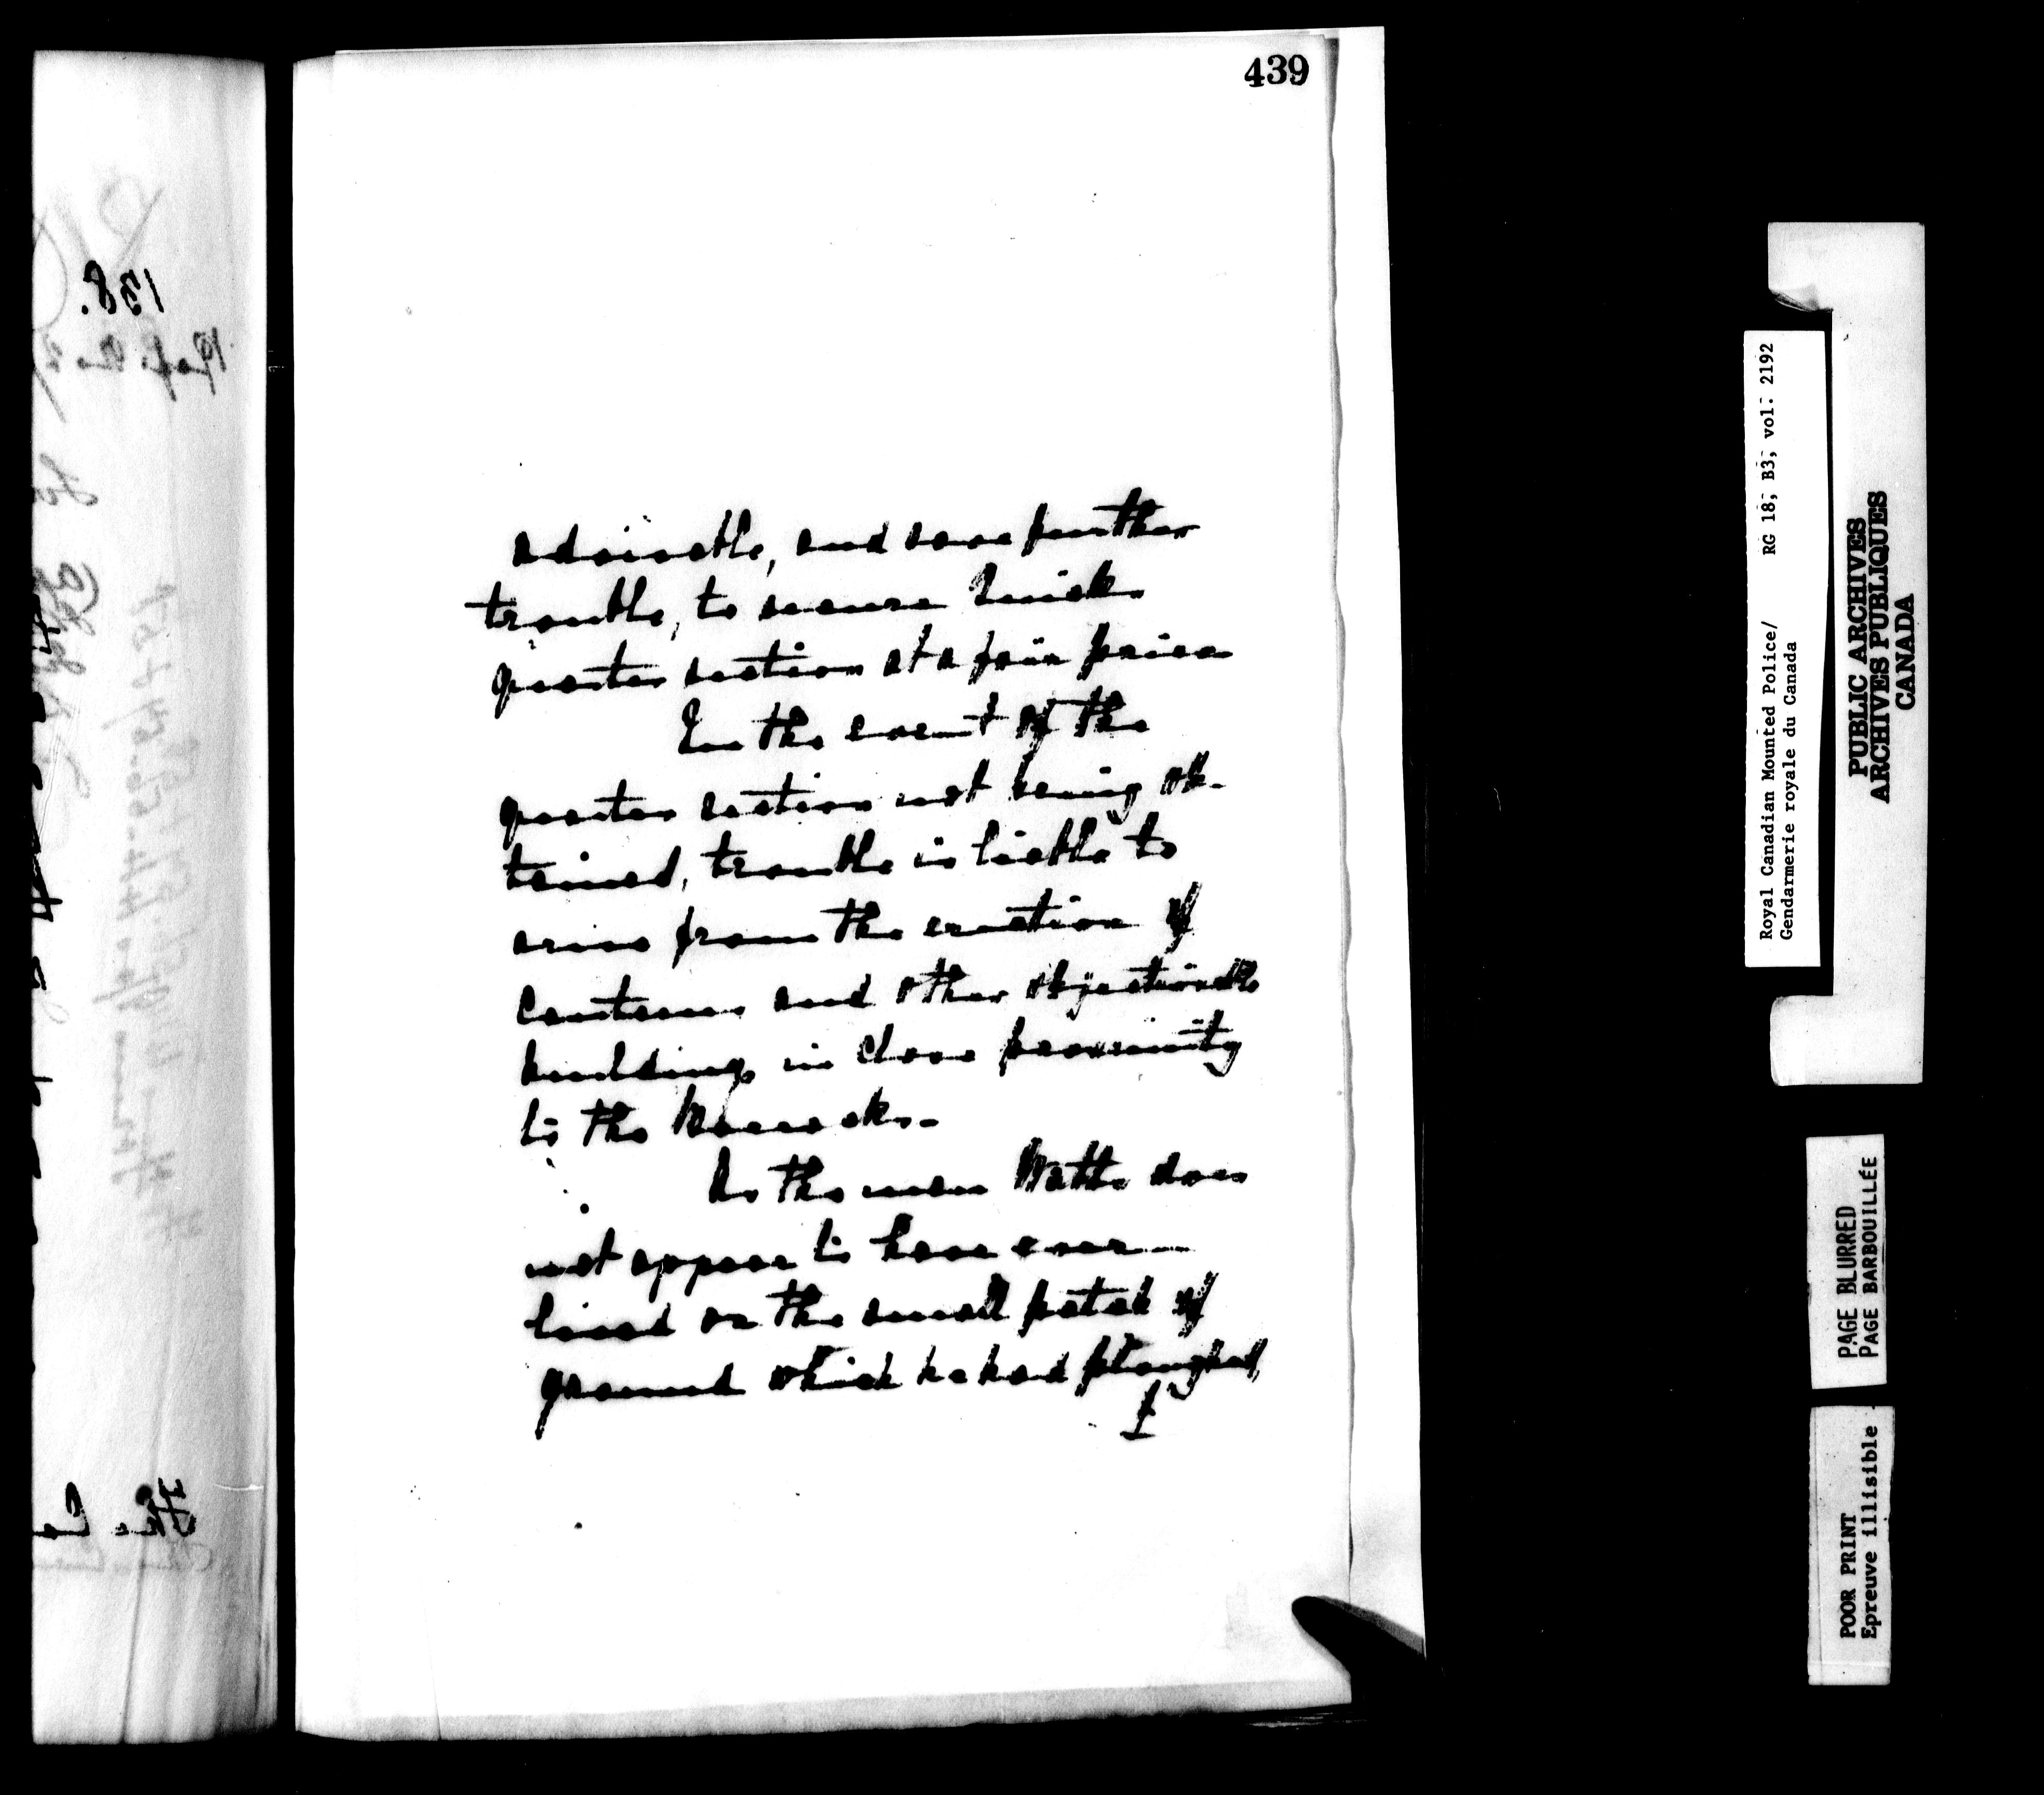 439
advisable, and save further
trouble, to secure Quick
quarter section at a fair price
In the event of the
quarter section not being ob-
tained, trouble is liable to
arise from the erection of
Canteens and other objectionable
buildings in close proximity
to the Barracks.-
As the man Watts does
not appear to have ever
lived on the small patch of
ground which he had ploughed,
I
138.
Royal Canadian Mounted Police/ RG 18, B3, vol: 2192
Gendarmerie royale du Canada
PUBLIC ARCHIVES
ARCHIVES PUBLIQUES
CANADA
PAGE BLURRED
PAGE BARBOUILLÉE
POOR PRINT
Epreuve illisible